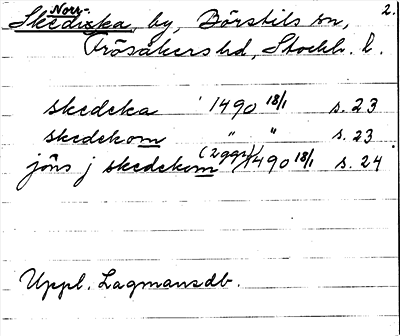 2.
Norr-
Skedika, by, Börstils sn,
Frösåkers hd, Stockh. l.
skedeka 1490 18/1 s. 23
skedekom " " s. 23
jöns j skedekom (2 ggr) 1490 18/1 s. 24
Uppl. Lagmansdb.